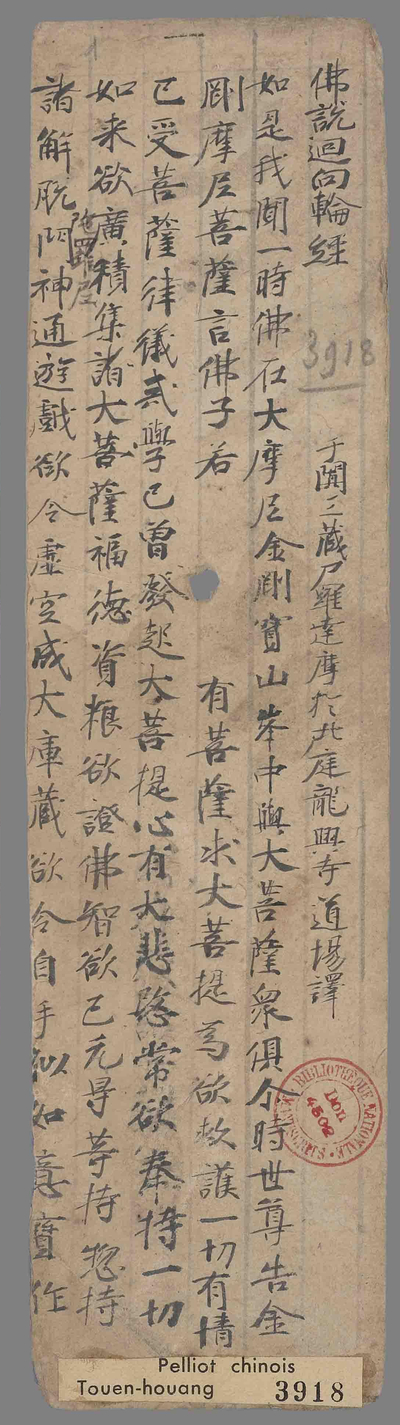 佛說迴向輪經
于闐三藏尸羅達摩於北庭龍興寺道場譯
如是我聞一時佛在大摩尼金剛寶山峯中與大菩薩衆俱尒時世尊告金
剛摩尼菩薩言佛子若有菩薩求大菩提爲欲救護一切有情
已受菩薩律儀式學已曾發起大菩提心有大悲愍常欲奉持一切
如来欲廣積集諸大菩薩福德資粮欲證佛智欲已无㝵等持惣持
陁羅尼
諸解脫門神通遊戲欲令虛空成大庫藏欲令自手似如意寶作
3918
BIBLIOTHEQUE NATIONALE
DON
4502
MANUSCRITS
Pelliot chinois
Touen-houang 3918